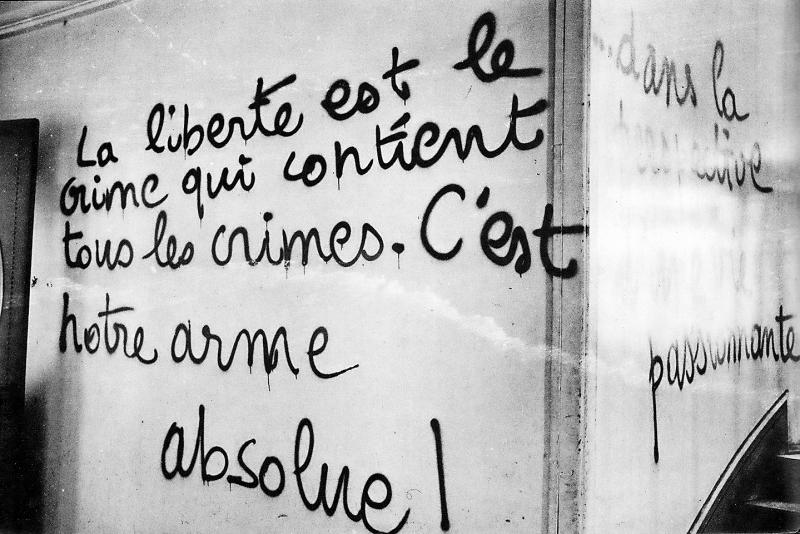 La liberté est le
crime qui contient
tous les crimes. C'est
notre arme
absolue !
...dans la
perspective
passionnante